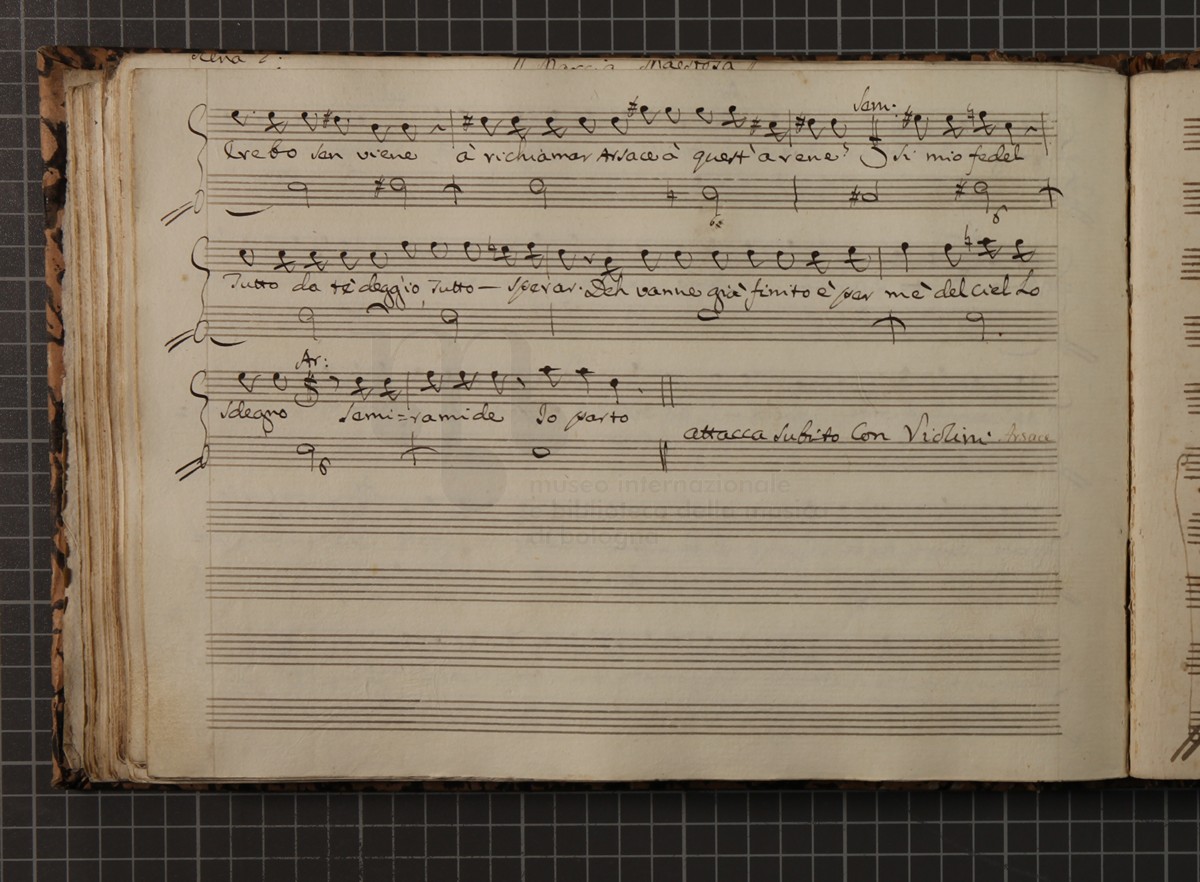 Marcia Maestosa
Sem:
Crebo sen viene à richiamar Arsace à quest'arene? Si mio fedel
Tutto da tè deggio Tutto — sperar. Deh vanne già finito è per mè del ciel Lo
Ar:
sdegno Semi=ramide Io parto
attacca Subito Con Violini Arsace
museo internazionale
e biblioteca della musica
di bologna